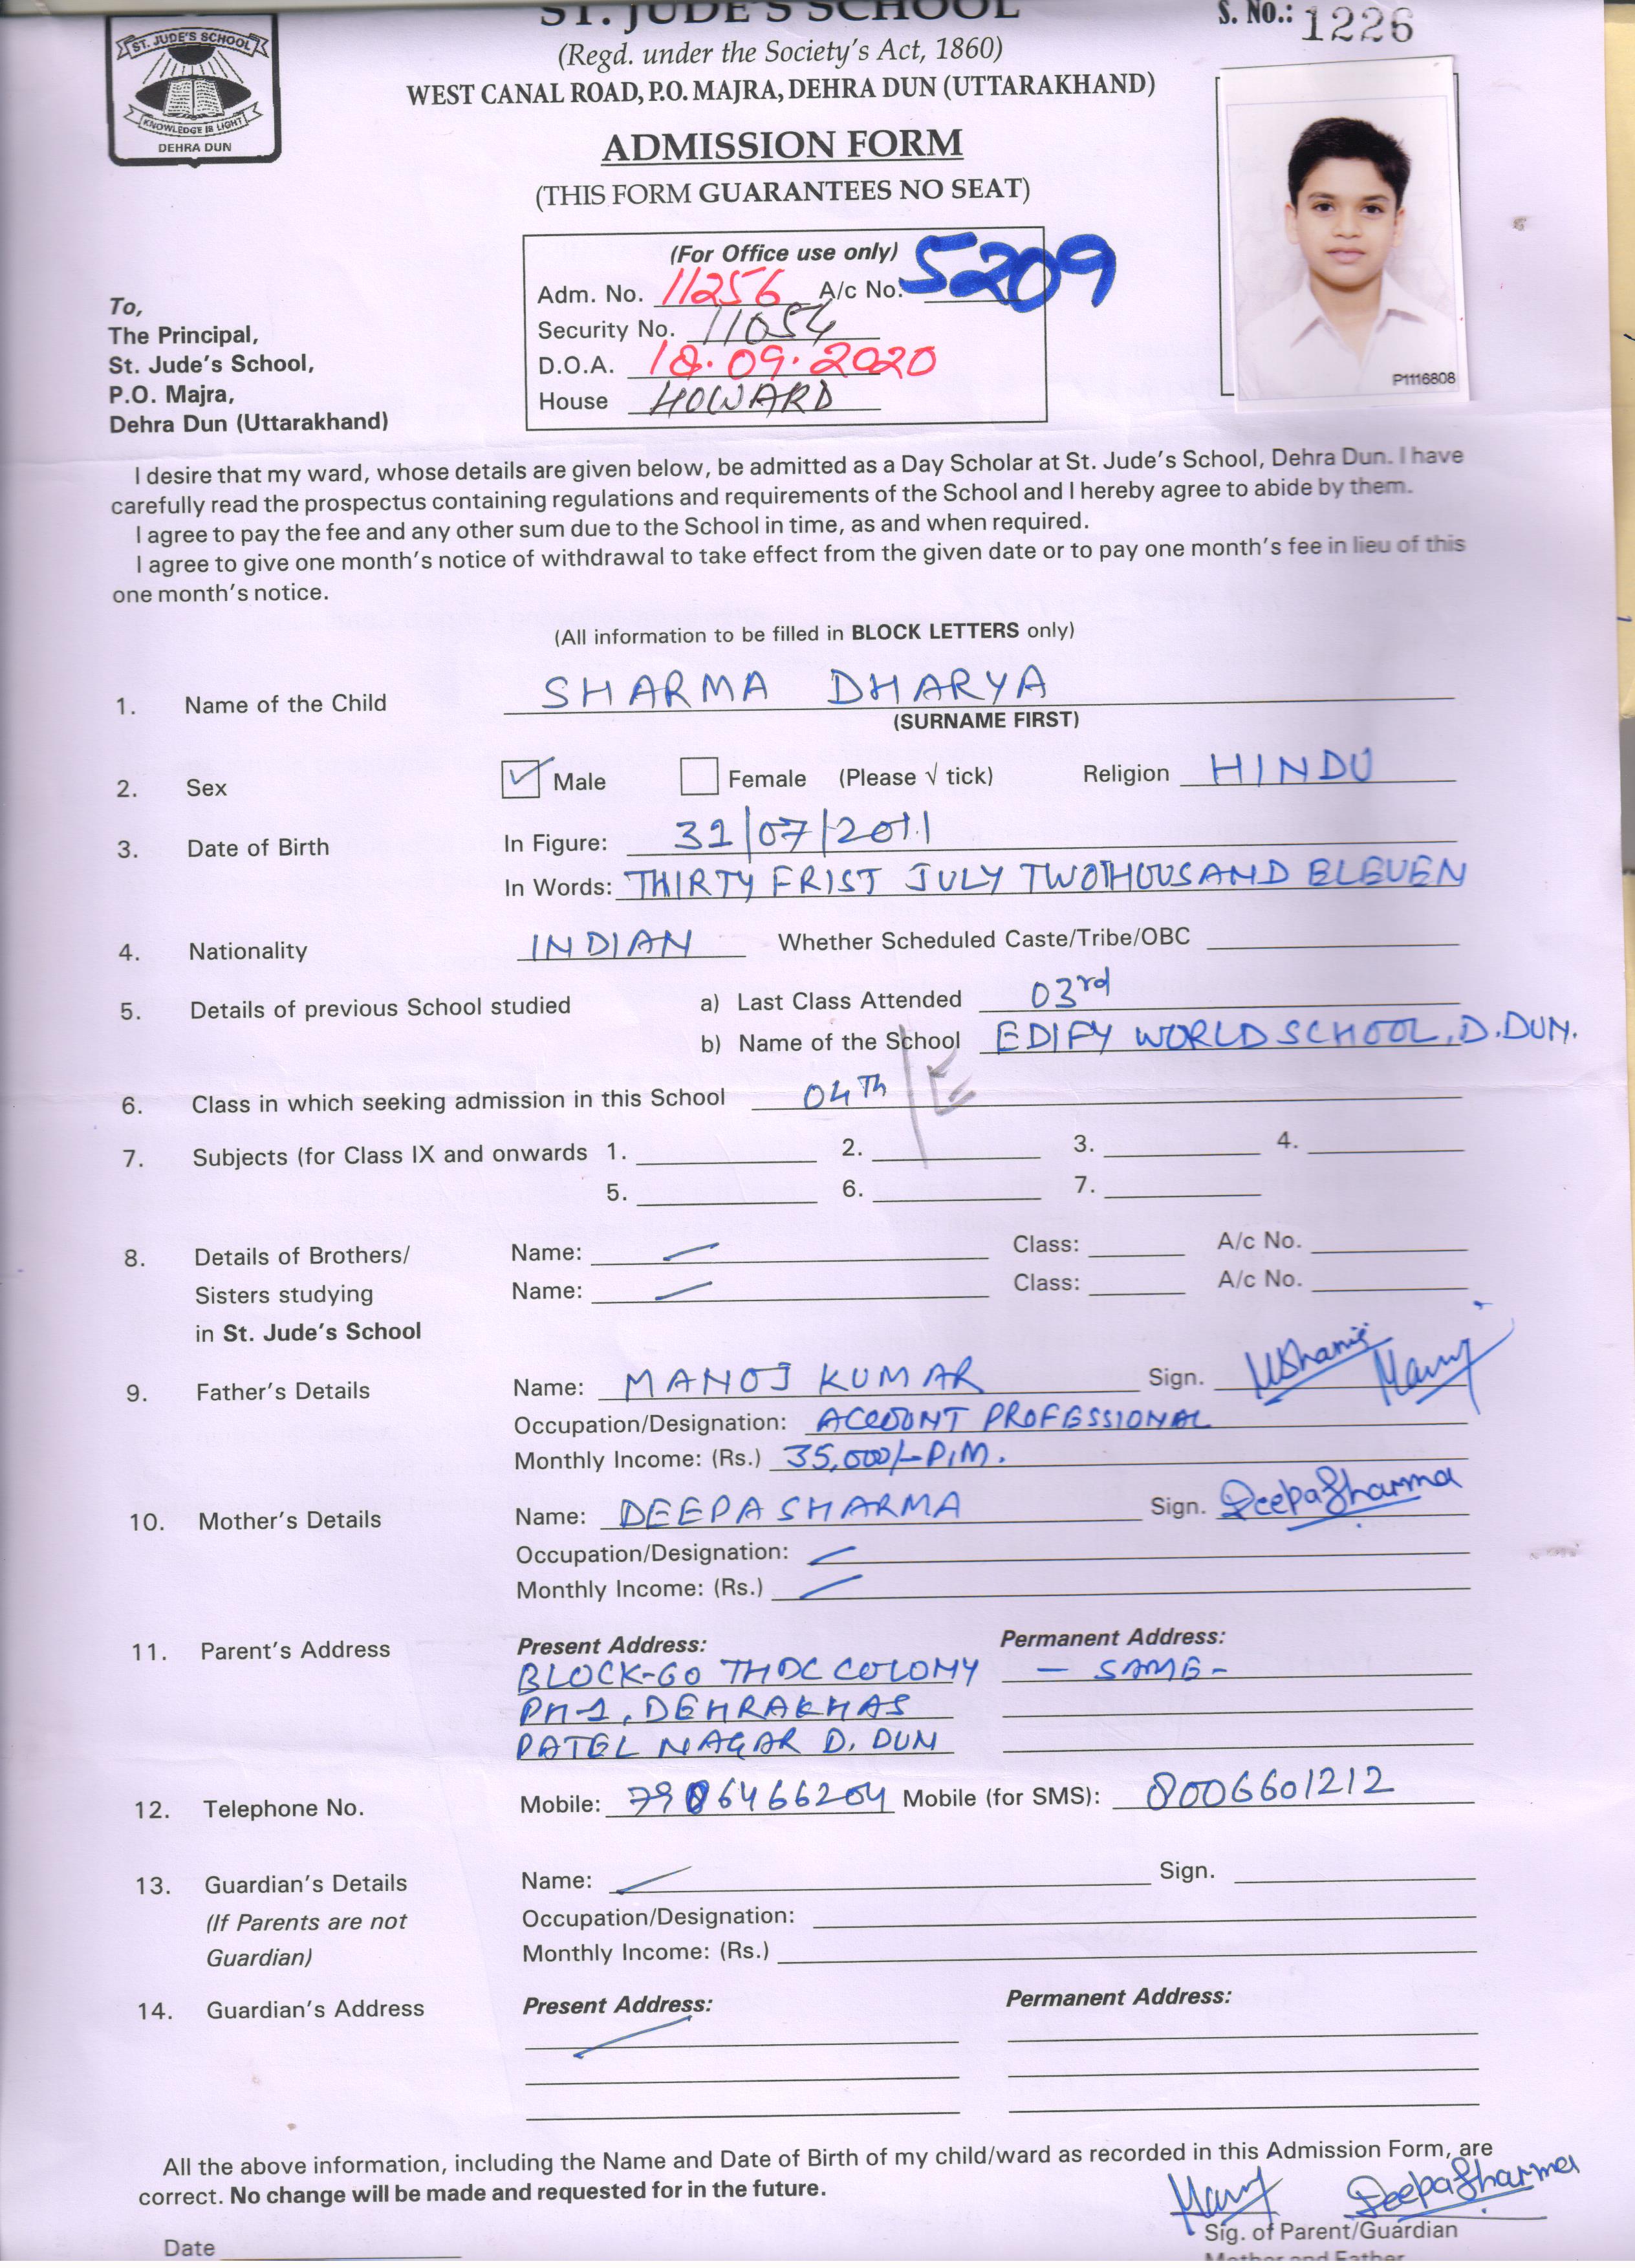 ST. JUDE'S SCHOOL
S. NO.: 1226
(Regd. under the Society's Act, 1860)
WEST CANAL ROAD, P.O. MAJRA, DEHRA DUN (UTTARAKHAND)
ST. JUDE'S SCHOOL
KNOWLEDGE IS LIGHT
DEHRA DUN
ADMISSION FORM
(THIS FORM GUARANTEES NO SEAT)
P1116808
(For Office use only)
Adm. No. 11256 A/c No. 5209
Security No. 11054
D.O.A. 18.09.2020
House HOWARD
To,
The Principal,
St. Jude's School,
P.O. Majra,
Dehra Dun (Uttarakhand)
I desire that my ward, whose details are given below, be admitted as a Day Scholar at St. Jude's School, Dehra Dun. I have
carefully read the prospectus containing regulations and requirements of the School and I hereby agree to abide by them.
I agree to pay the fee and any other sum due to the School in time, as and when required.
I agree to give one month's notice of withdrawal to take effect from the given date or to pay one month's fee in lieu of this
one month's notice.
(All information to be filled in BLOCK LETTERS only)
1. Name of the Child SHARMA DHARYA
(SURNAME FIRST)
2. Sex Male Female (Please √ tick) Religion HINDU
3. Date of Birth In Figure: 31/07/2011
In Words: THIRTY FRIST JULY TWOTHOUSAND ELEVEN
4. Nationality INDIAN Whether Scheduled Caste/Tribe/OBC
5. Details of previous School studied a) Last Class Attended 03rd
b) Name of the School EDIFY WORLD SCHOOL, D.DUN.
6. Class in which seeking admission in this School 04Th /E
7. Subjects (for Class IX and onwards 1. 2. 3. 4.
5. 6. 7.
8. Details of Brothers/ Name: Class: A/c No.
Sisters studying Name: Class: A/c No.
in St. Jude's School
9. Father's Details Name: MANOJ KUMAR Sign.
Occupation/Designation: ACCOUNT PROFESSIONAL
Monthly Income: (Rs.) 35,000/- P.M.
10. Mother's Details Name: DEEPA SHARMA Sign. Deepa Sharma
Occupation/Designation:
Monthly Income: (Rs.)
11. Parent's Address Present Address: Permanent Address:
BLOCK-GO THDC COLONY - SAME -
PH-1, DEHRAKHAS
PATEL NAGAR D. DUN
12. Telephone No. Mobile: 7906466204 Mobile (for SMS): 8006601212
13. Guardian's Details Name: Sign.
(If Parents are not Occupation/Designation:
Guardian) Monthly Income: (Rs.)
14. Guardian's Address Present Address: Permanent Address:
All the above information, including the Name and Date of Birth of my child/ward as recorded in this Admission Form, are
correct. No change will be made and requested for in the future.
Deepa Sharma
Sig. of Parent/Guardian
Date
Mother and Father